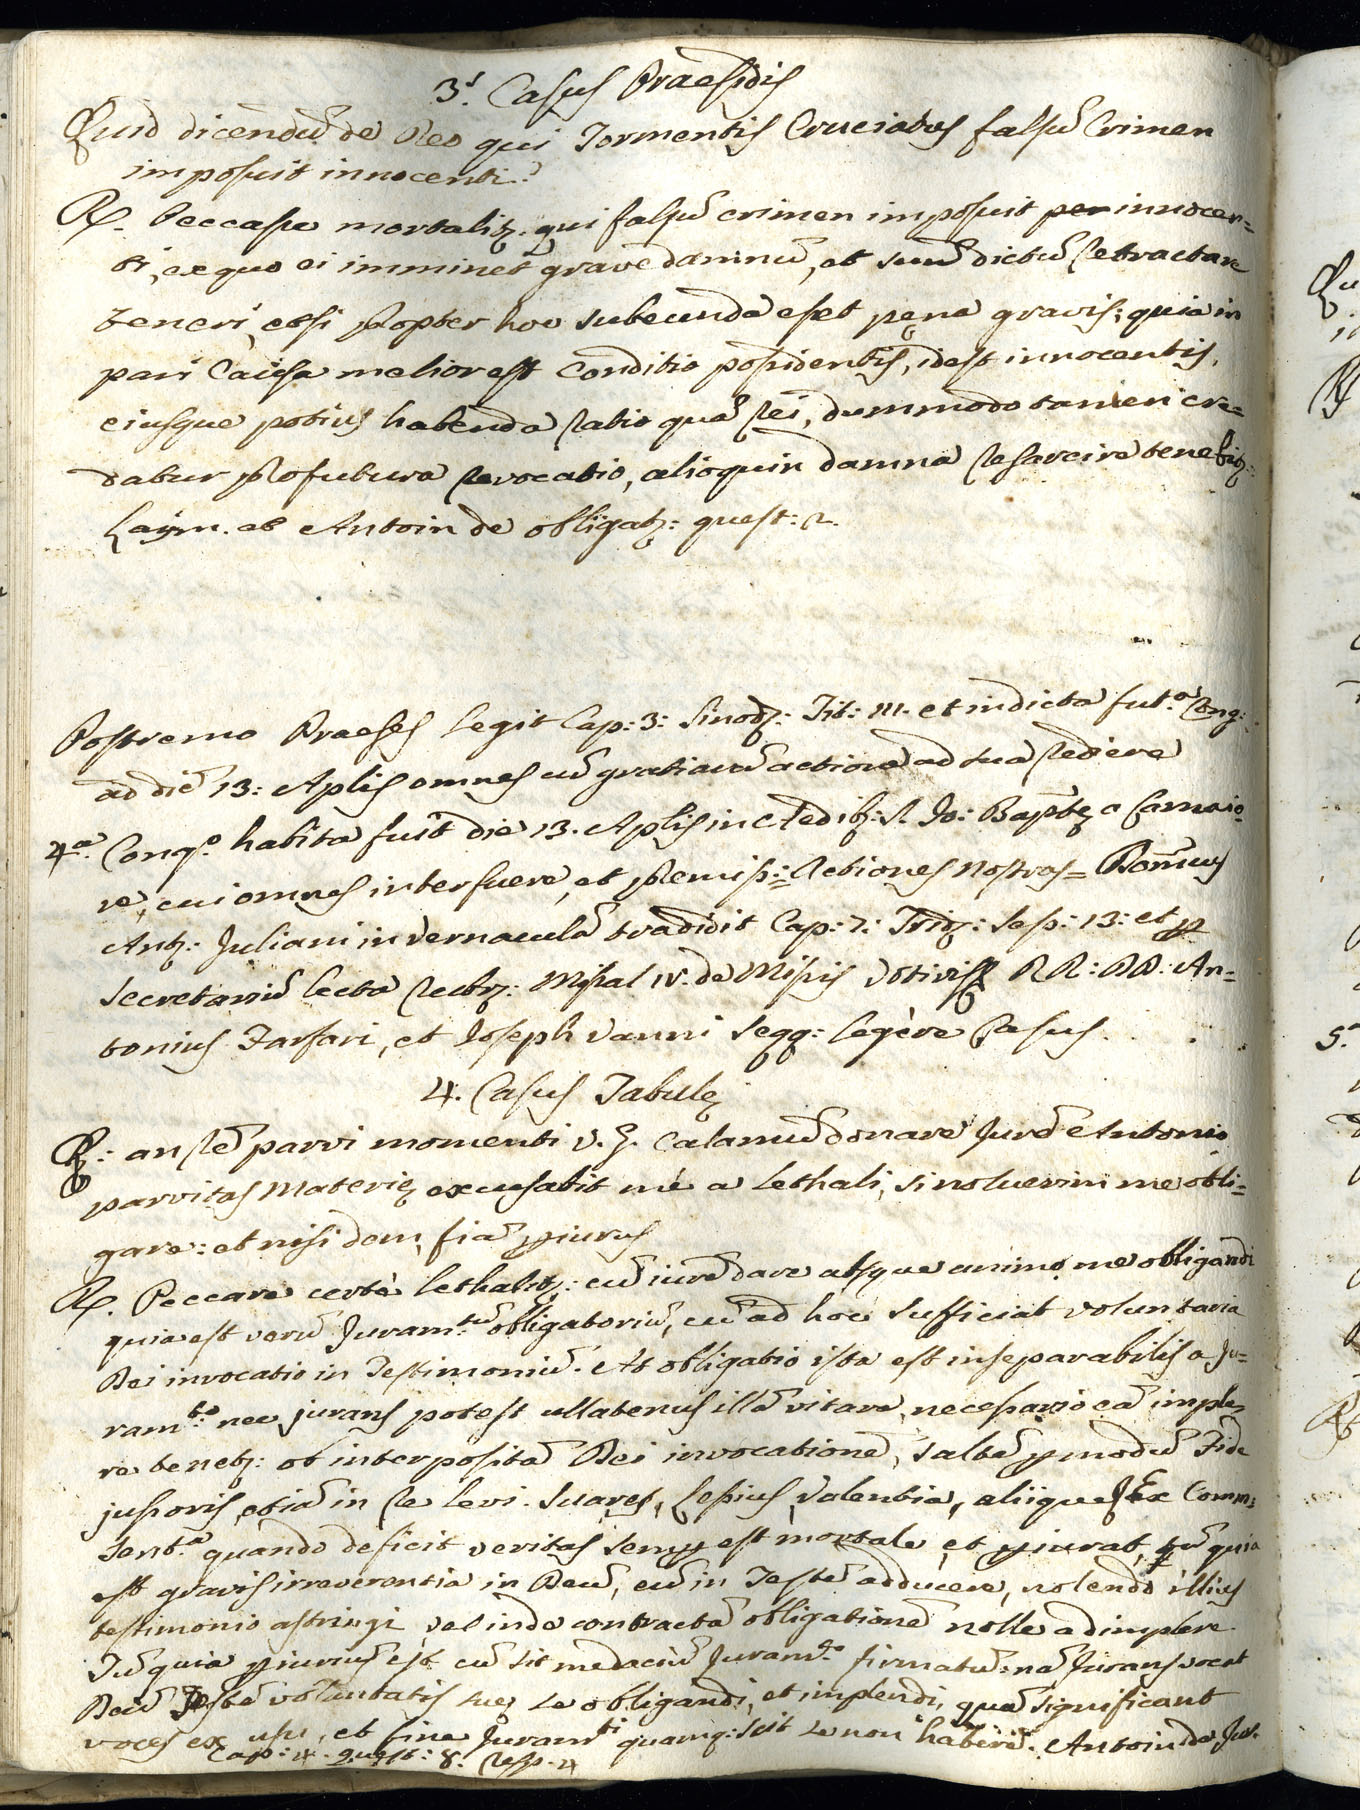 3.s Casus Praesidis
Quid dicendũ de Reo qui Tormentis Cruciatus falsũ Crimen
imposuit innocenti?
R. Peccasse mortalitz. qui falsũ crimen imposuit per innocen=
ti, ex quo ei imminet grave damnũ, et suũ dictũ retractare
teneri, etsi propter hoc subeunda esset pęna gravis; quia in
pari Caüsa melior est conditio possidentis, idest innocentis,
eiusque potius habenda ratio quã rei, dummodo tamen cre=
datur profutura revocatio, alioquin damna resarcire tenebitz:
Laym. et Antoin de obligatz: quest: 2.
Postremo Praeses legit Cap: 3: Sinodz: Tit: III. et indicta fut.a Cong:
ad diẽ 13: Aplis omnes cũ gratiarũ actione ad sua rediere
4.a Cong.o habita fuit die 13. Aplis in Ædibz: S. Jo: Baptę a Camaio=
re, cui omnes interfuere, et premiss:= actiones nostras= Romus
Antz: Juliani in vernaculã tradidit Cap: 7: Tridz: Sess: 13: et p
Secretariũ lecta rubrz: Missal IV. de Missis votivis RR: DD: An=
tonius Tarfari, et Joseph Vanni segq: legère casus.
4. Casus Tabulę
Q: an rẽ parvi momenti v. g. calamũ donare Jurẽ Antonio
parvitas Materię excusabit mè a lethali, si noluerim me obli=
gare: et nisi dem, fiã piurus
R. Peccare certè lethalitz: cũ iurẽ dare absque animo me obligandi
quia est verũ Juram.tũ obligatoriũ, cũ ad hoc sufficiat voluntaria
Dei invocatio in Testimoniũ. At obligatio ista est inseparabilis a Ju=
ram.to nec jurans potest ullatenus illã vitare, necessario eã imple=
re tenetz: ob interpositã Dei invocationẽ, saltẽ p modũ Fide
jussoris, etiã in re levi. Suarez, Lessius, Valentia, aliique Ex Comm:
Sent.a quando deficit veritas semp est mortale, et piurat, tũ quia
est gravis irreverentia in Deũ, eũ in Testẽ adducere, nolendo illius
testimonio astringi, vel inde contractã obligationẽ nolle adimplere
Tũ quia piuriũ est cũ sit mendaciũ Juram.to firmatũ: nã Jurans vocat
Deũ Testẽ voluntatis suę se obligandi, et implendi, quã significant
voces ex usu, et fine Juram.ti quamq: scit se non habere. Antoin de Jur.
Cap: 4. quest: 8. Resp. 4